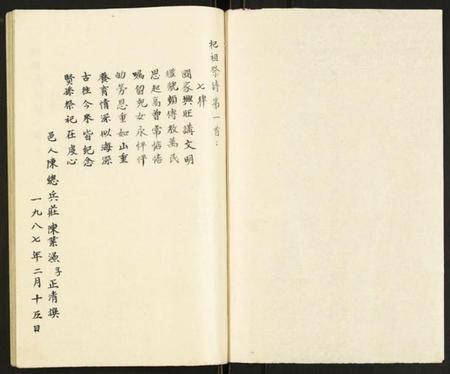 祀祖祭詩第一首：
七律
國家興旺講文明
繼統賴傳教萬民
思起高曾常惦惦
囑留兒女永怦怦
劬勞恩重如山重
養育情深似海深
古往今來皆紀念
賢孫祭祀在虔心
邑人陳總兵莊陳葉源子正清撰
一九八七年二月十五日